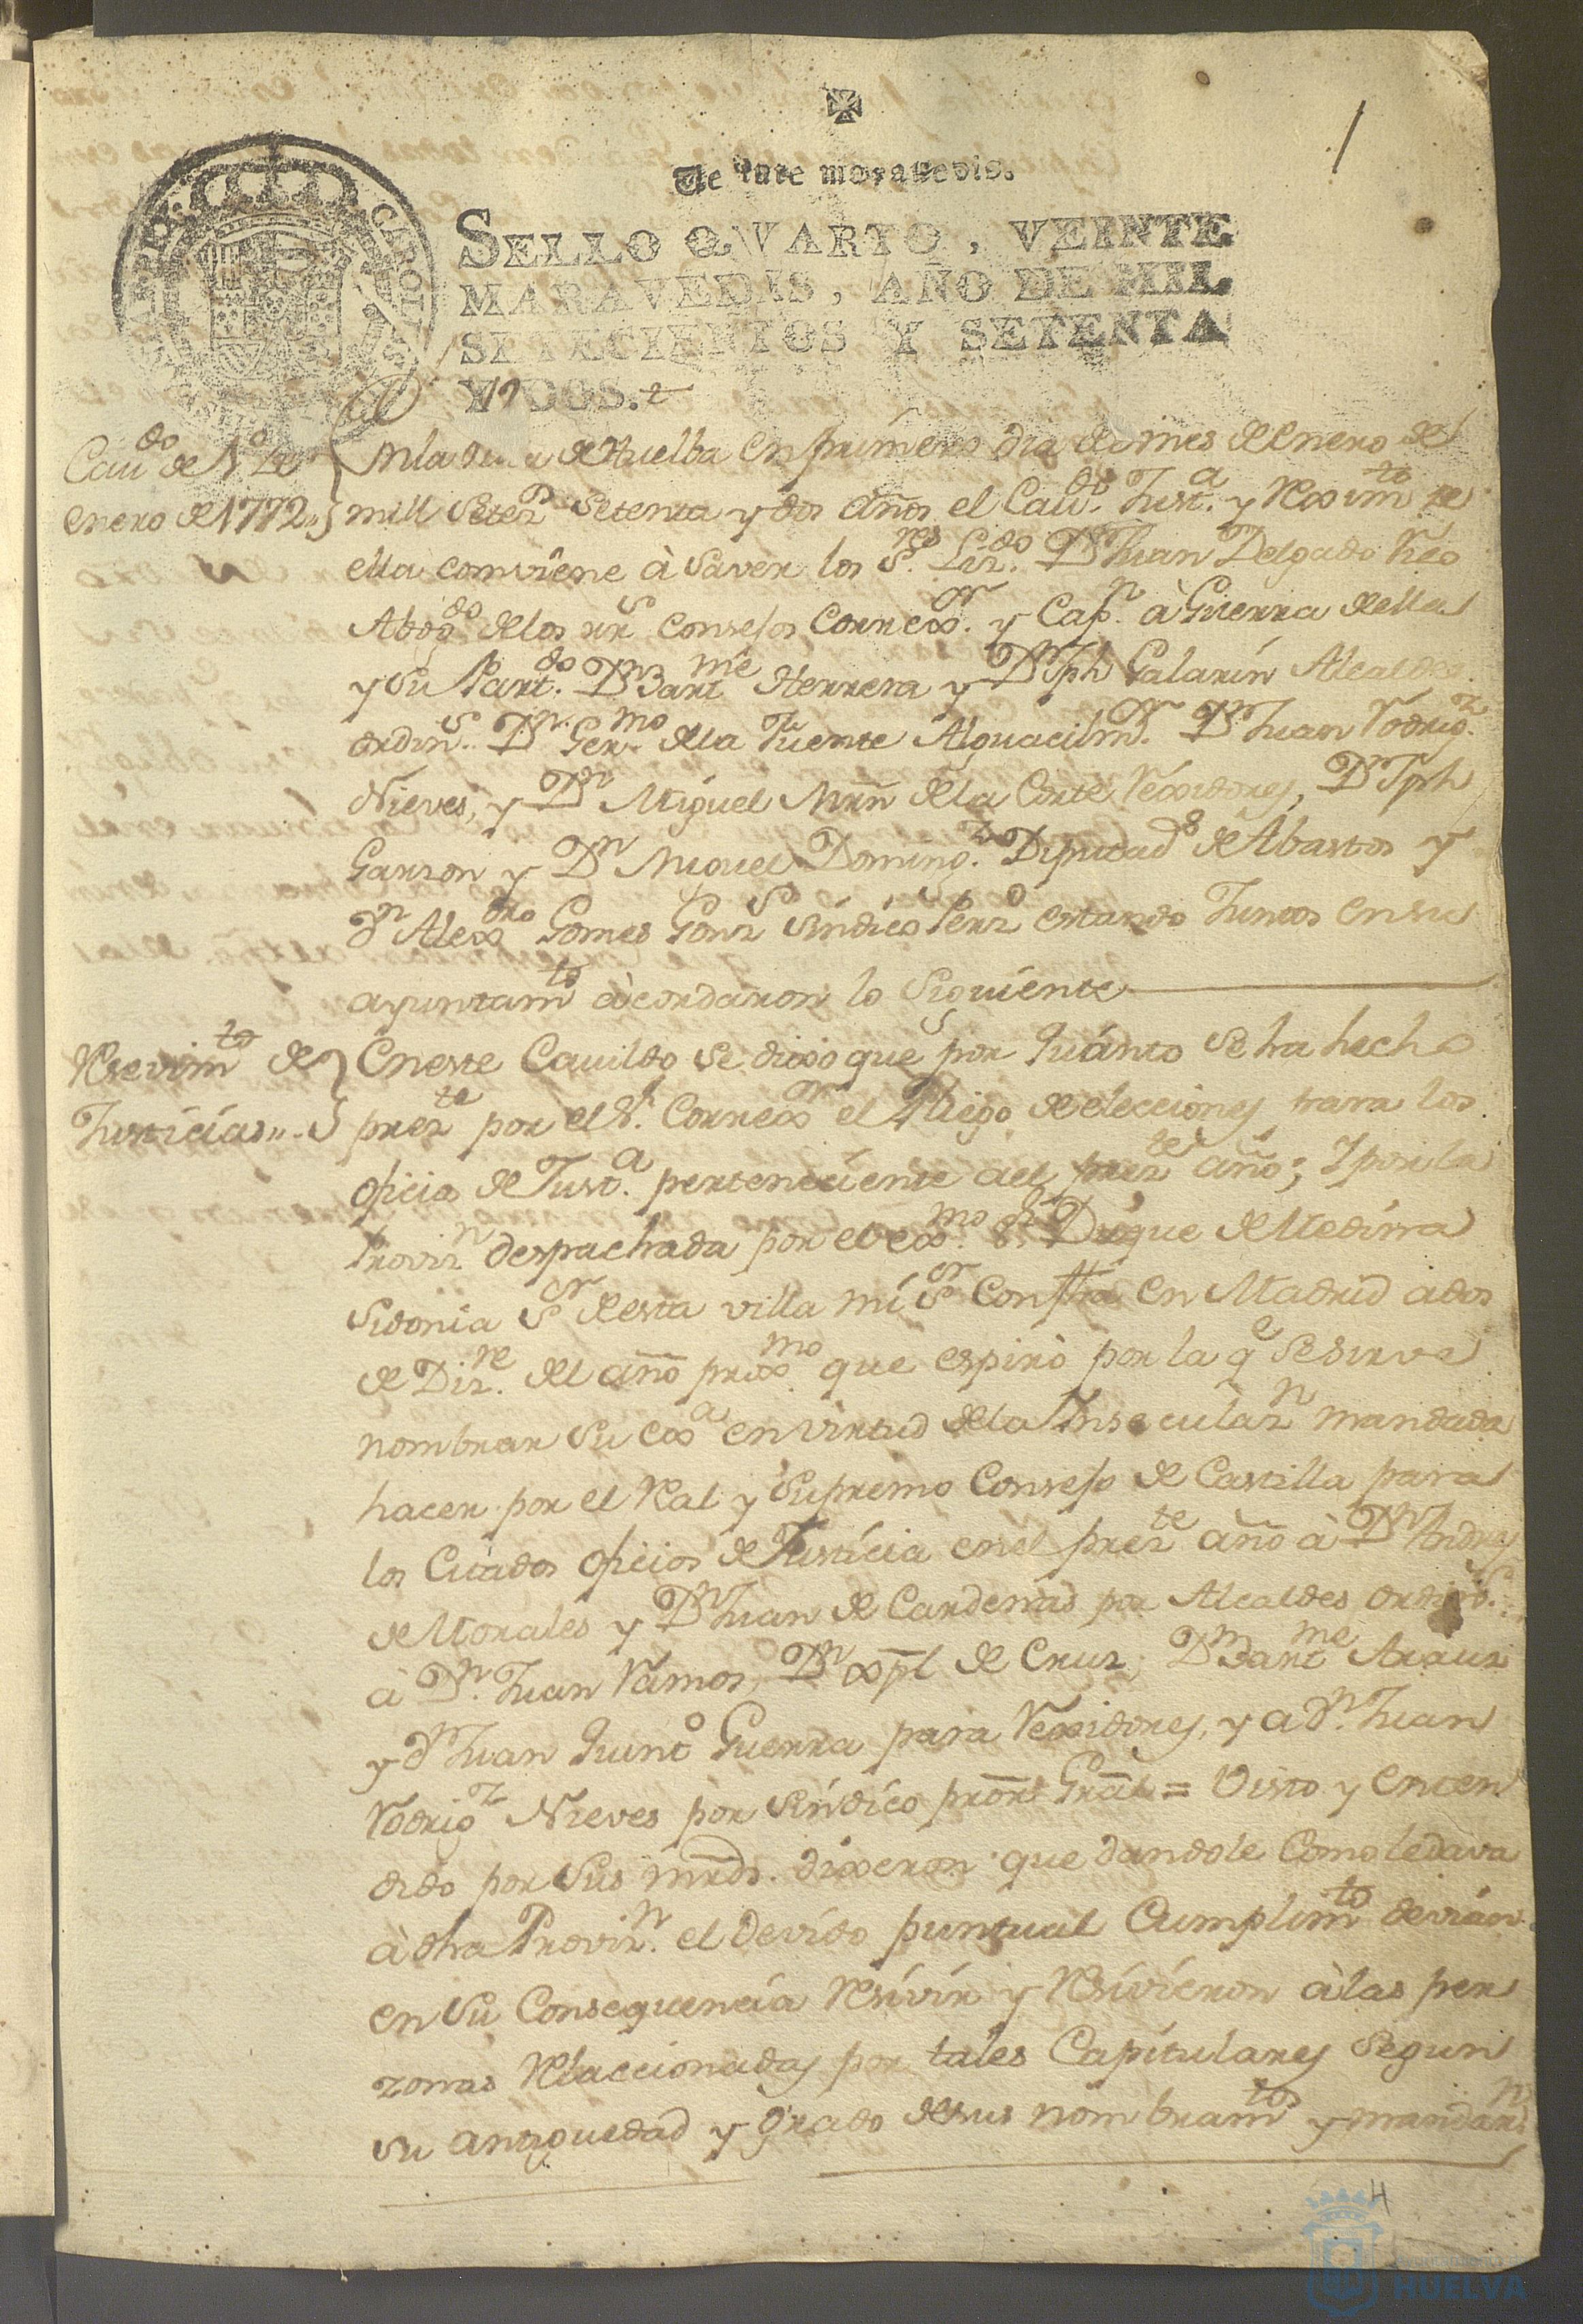 1
Veinte maravedis.
SELLO QVARTO, VEINTE
MARAVEDIS, AÑO DE MIL
SETECIENTOS Y SETENTA
Y DOS.
Cauᵈᵒ de 1º de
enero de 1772
En la villa de Huelba en primero dia de mes de enero de
mill Setezᵒˢ Setenta y dos años el Cauᵈᵒ. Justᵃ. y Reximᵗᵒ de
ella combiene à Saver los Sʳᵉˢ. Lizᵈᵒ. Dⁿ Juan Delgado Rico
Abogᵈᵒ de los rrˢ consejos Correxᵒʳ. y Capⁿ. à Guerra de ella
y su Partᵈᵒ. Dⁿ Bartᵐᵉ Herrera y Dⁿ Jph Galarin Alcaldes
ordinˢ. Dⁿ. Gerᵐᵒ de la Fuente Alguacil mᵒʳ. Dⁿ Juan Rodrigᶻ.
Nieves, y Dⁿ Miguel Mrñ de la Corte Rexidores, Dⁿ Jph
Garzon y Dⁿ Miguel Domingᶻ. Diputadˢ de Abastos y
dⁿ Alexᵈʳᵒ Gomes Gonzˢ Sindico Perzᵒ estando Juntos en su
ayuntamᵗᵒ àcordaron lo Siguiente
Resevimᵗᵒ de
Justicias
En este Cauildo se dixo que por Quánto se ha hecho
prezᵗᵉ por el Sʳ. Correxᵒʳ el Pliego de elecciones para los
oficios de Justᵃ. perteneciente a el prezᵗᵉ año; Y por la
Provizⁿ despachada por el exᵐᵒ. Sʳ. Duque de Medina
Sidonia Sᵒʳ de esta villa mi Sᵒʳ con fha en Madrid a dos
de Dizʳᵉ. del año proxᵐᵒ. que espirò por la qᵉ se sirve
nombrar Su exᵃ en virtud de la Insecularⁿ mandada
hacer por el Real y Supremo Consejo de Castilla para
los Citados oficios de Justicia en el prezᵗᵉ año à Dⁿ Andres
de Morales y Dⁿ Juan de Cardenas por Alcaldes ordinˢ.
à Dⁿ. Juan Ramos, Dⁿ Xpl de Cruz, Dⁿ Bartᵐᵉ Arauz
y dⁿ Juan Quintᵒ Guerra para Rexidores, y a dⁿ. Juan
Rodrigᶻ Nieves por Sindico prōr Grāl = Visto y enten
dido por Sus mrds. dixeron que dandole Como le dava
à dha Provizⁿ. el devido puntual Cumplimᵗᵒ devian
en su Consequencia Resivir y Resivieron à las per
zonas Relaccionadas por tales Capitulares Segun
su antiguedad y grado de sus nombramᵗᵒˢ y mandarⁿ
4
HUELVA